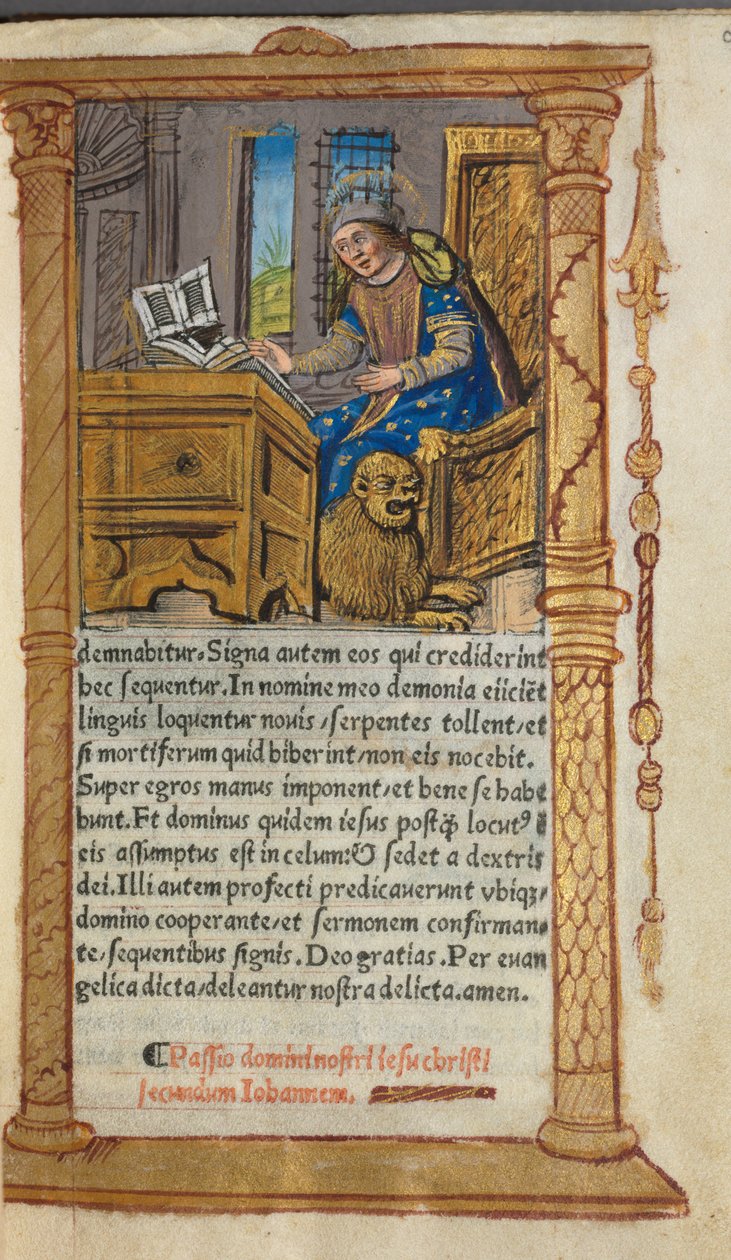 demnabitur. Signa autem eos qui crediderint
hec sequentur. In nomine meo demonia eiiciẽt
linguis loquentur nouis / serpentes tollent / et
si mortiferum quid biberint / non eis nocebit.
Super egros manus imponent / et bene se habe
bunt. Et dominus quidem iesus postꝗ̃ locutꝰ ẽ
eis assumptus est in celum: & sedet a dextris
dei. Illi autem profecti predicauerunt vbiqꝫ /
domino cooperante / et sermonem confirman⸗
te / sequentibus signis. Deo gratias. Per euan
gelica dicta / deleantur nostra delicta. amen.
⸿ Passio domini nostri iesu christi
secundum Iohannem.